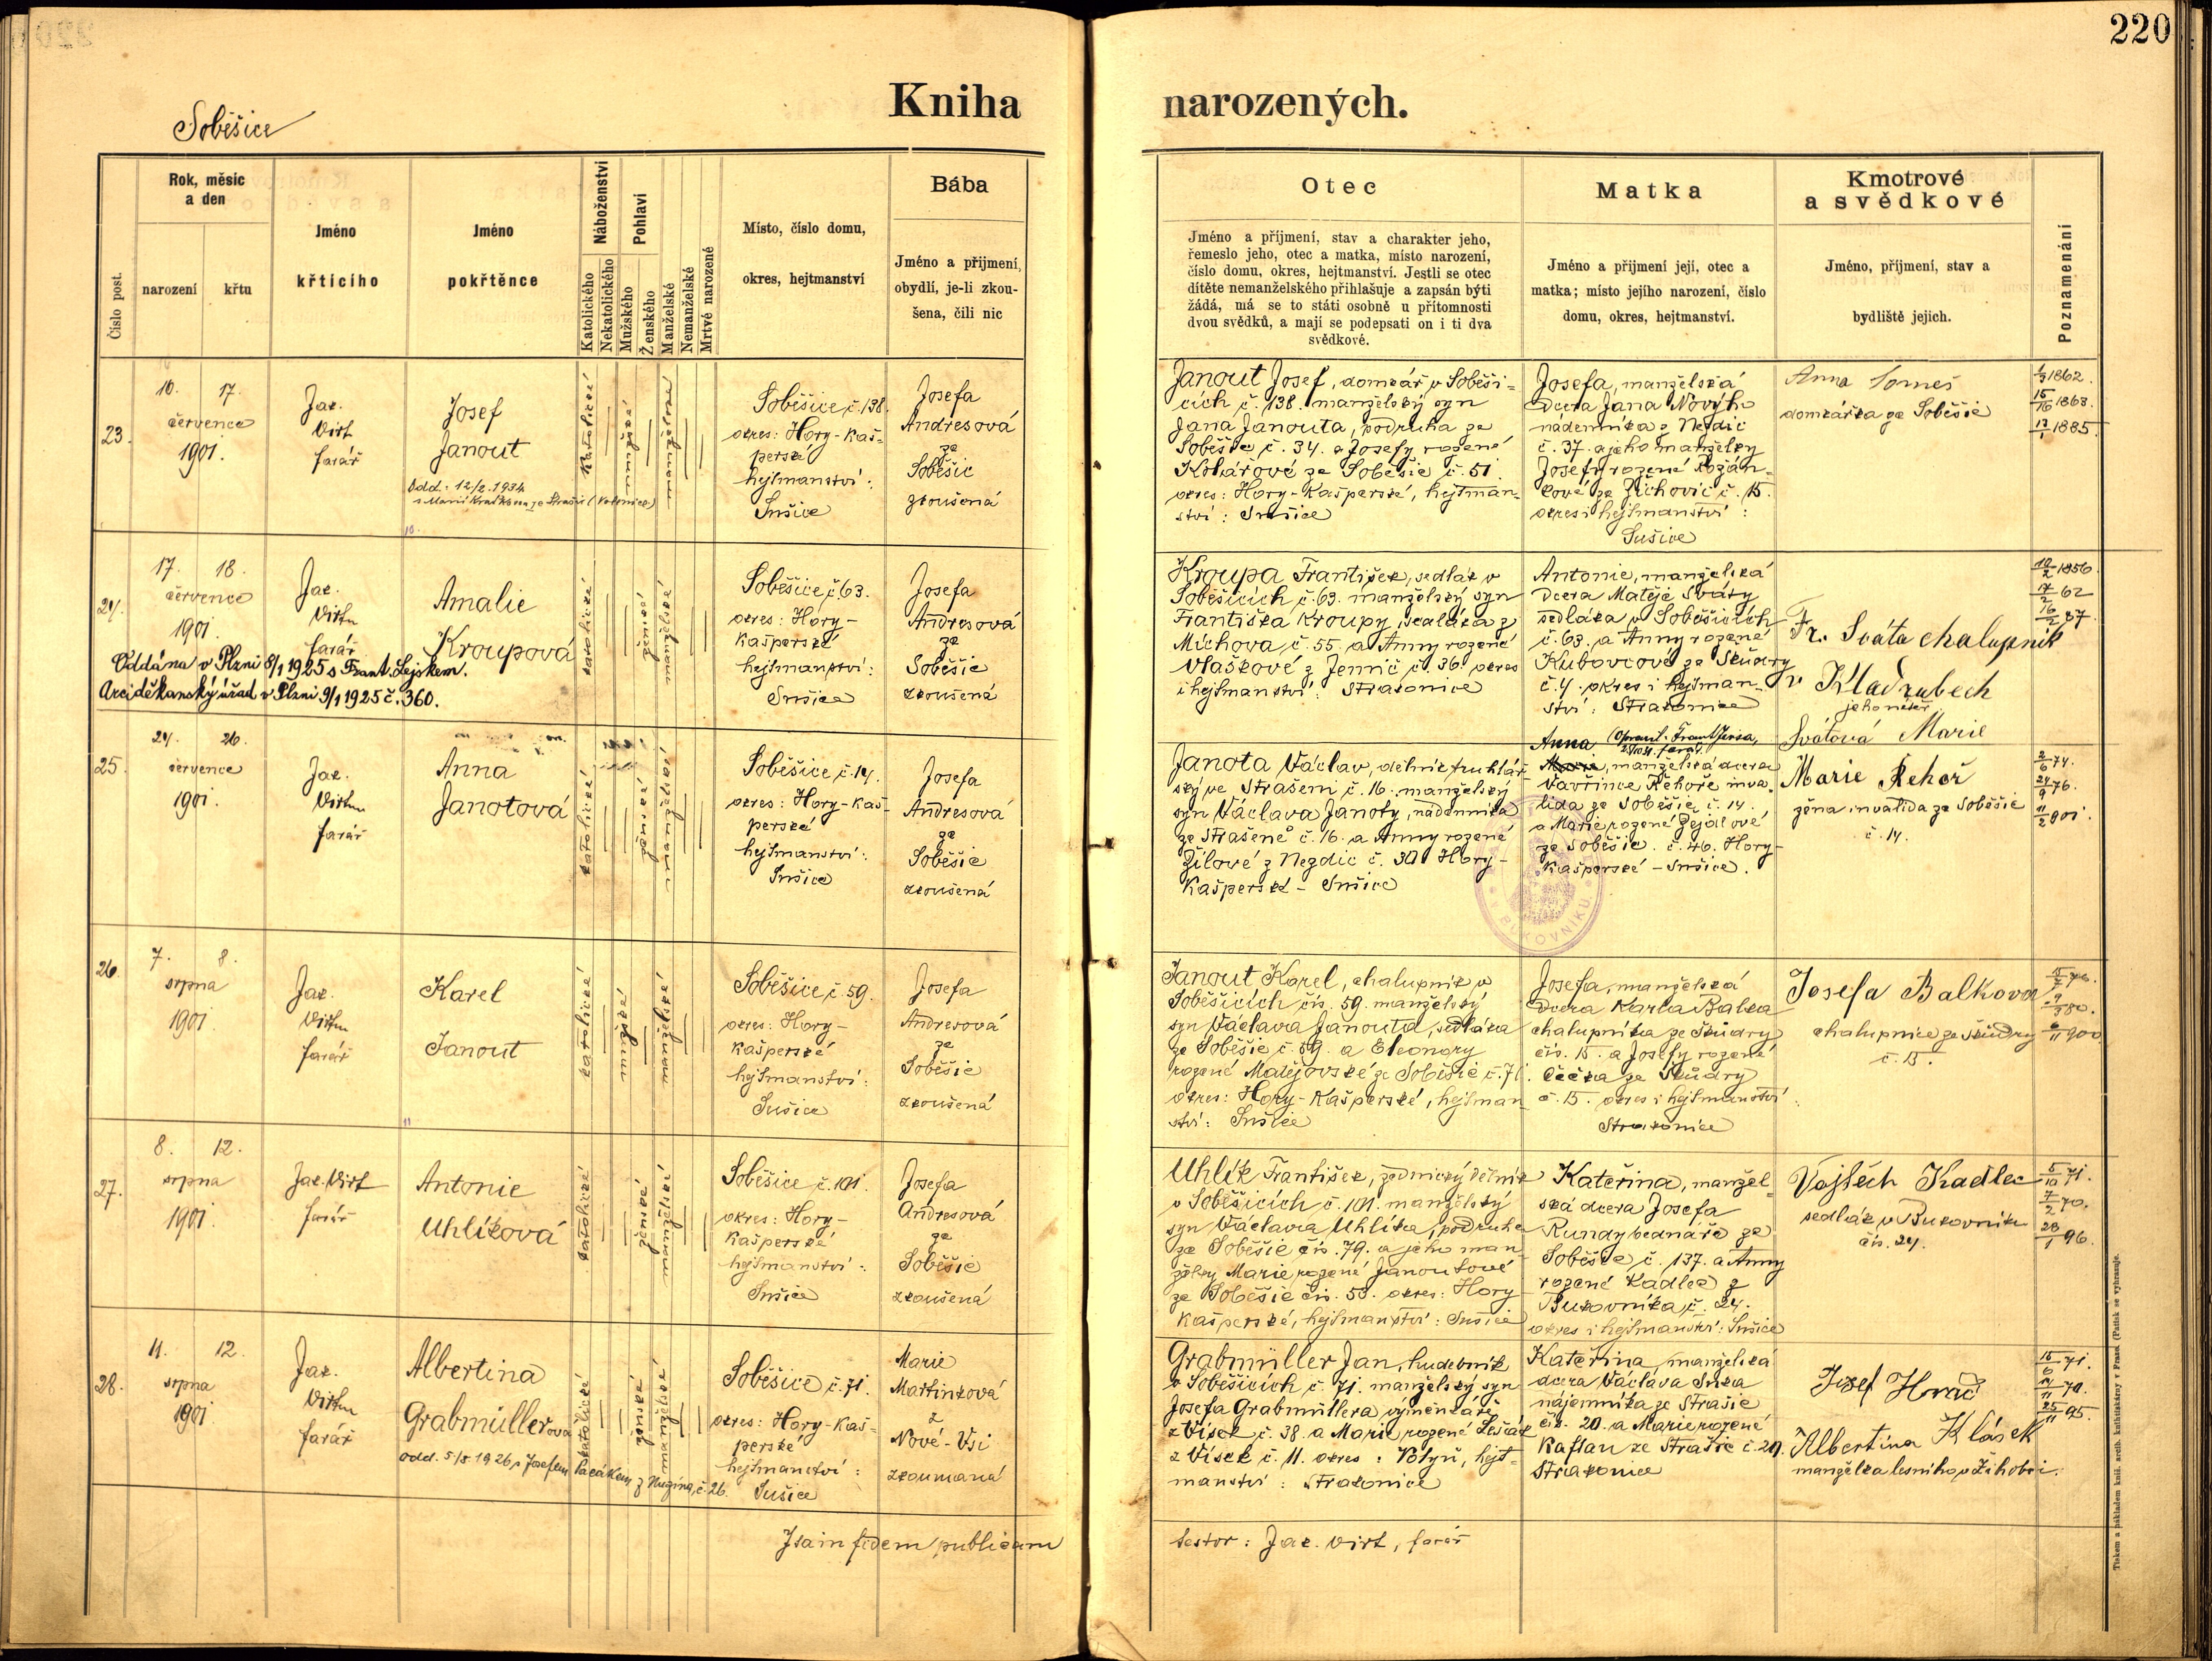 220
Soběšice
Kniha narozených.
Číslo post.
Rok, měsíc a den
narození
křtu
Jméno křtícího
Jméno pokřtěnce
Náboženství
Katolického
Nekatolického
Pohlaví
Mužského
Ženského
Manželské
Nemanželské
Mrtvé narozené
Místo, číslo domu,
okres, hejtmanství
Bába
Jméno a příjmení,
obydlí, je-li zkou-
šena, čili nic
Otec
Jméno a příjmení, stav a charakter jeho,
řemeslo jeho, otec a matka, místo narození,
číslo domu, okres, hejtmanství. Jestli se otec
dítěte nemanželského přihlašuje a zapsán býti
žádá, má se to státi osobně u přítomnosti
dvou svědků, a mají se podepsati on i ti dva
svědkové.
Matka
Jméno a příjmení její, otec a
matka; místo jejího narození, číslo
domu, okres, hejtmanství.
Kmotrové
a svědkové
Jméno, příjmení, stav a
bydliště jejich.
Poznamenání
23.
10. 17.
července
1901.
Jak.
Virt
farář
Josef
Janout
Odd. 12/2. 1934
katolické
mužské
manželské
Soběšice č. 138.
okres: Hory-Kaš-
perské
hejtmanství:
Sušice
Josefa
Andresová
ze
Soběšic
zkoušená
Janout Josef, domkář v Soběši-
cích č. 138. manželský syn
Jana Janouta, podruha ze
Soběšic č. 34. a Josefy rozené
Kolářové ze Soběšic č. 51.
okres: Hory-Kašperské, hejtman-
ství: Sušice
Josefa, manželská
dcera Jana Nového
nádenníka z Nezdic
č. 37. a jeho manželky
Josefy rozené Rozán-
kové ze Žichovic č. 15.
okres i hejtmanství:
Sušice
Anna
domkářka ze Soběšic
1862.
15/16 1863.
1885.
24.
17. 18.
července
1901.
Jak.
Virt
farář
Amalie
Kroupová
Oddána v Plzni 8/1 1925 s Frant. Lejskem.
Arciděkanský úřad v Plzni 9/1 1925 č. 360.
katolické
ženské
manželské
Soběšice č. 63.
okres: Hory-
Kašperské
hejtmanství:
Sušice
Josefa
Andresová
ze
Soběšic
zkoušená
Kroupa František, sedlák v
Soběšicích č. 63. manželský syn
Františka Kroupy, sedláka z
Míchova č. 55. a Anny rozené
Vlaškové z Jennic č. 36. okres
i hejtmanství: Strakonice
Antonie, manželská
dcera Matěje Sváty
sedláka v Soběšicích
č. 63. a Anny rozené
Kubovcové ze Škůdry
č. 4. okres i hejtman-
ství: Strakonice
Fr. Sváta chalupník
v Kladrubech
Svátová Marie
1856
62
16/2 87
25.
24. 26.
července
1901.
Jak.
Virt
farář
Anna
Janotová
katolické
ženské
manželské
Soběšice č. 14.
okres: Hory-Kaš-
perské
hejtmanství:
Sušice
Josefa
Andresová
ze
Soběšic
zkoušená
Janota Václav, dělník truhlář-
ský ve Strašeni č. 16. manželský
syn Václava Janoty, nádenníka
ze Strašeně č. 16. a Anny rozené
Žílové z Nezdic č. 30. Hory-
Kašperské - Sušice
Anna (Opravil Frant. Jirsa, farář.
manželská dcera
Vavřince Řehoře inva-
lida ze Soběšic č. 14.
a Marie rozené Zejdlové
ze Soběšic. č. 46. Hory-
Kašperské - Sušice.
Marie Řehoř
žena invalida ze Soběšic
č. 14.
2/6 74.
24/9 76.
11/2 901.
26.
7. 8.
srpna
1901
Jak.
Virt
farář
Karel
Janout
katolické
mužské
manželské
Soběšice č. 59.
okres: Hory-
Kašperské
hejtmanství:
Sušice
Josefa
Andresová
ze
Soběšic
zkoušená
Janout Karel, chalupník v
Soběšicích čís. 59. manželský
syn Václava Janouta, sedláka
ze Soběšic č. 59. a Eleonory
rozené Matějovské ze Soběšic č. 71.
okres: Hory-Kašperské, hejtman-
ství: Sušice
Josefa, manželská
dcera Karla Balka
chalupníka ze Škůdry
čís. 15. a Josefy rozené
Čečka ze Škůdry
č. 15. okres i hejtmanství:
Strakonice
Josefa Balkova
chalupnice ze Škůdry
č. 15.
76.
80.
6/11 900
27.
8. 12.
srpna
1901.
Jak. Virt
farář
Antonie
Uhlíková
katolické
ženské
manželské
Soběšice č. 101.
okres: Hory-
Kašperské
hejtmanství:
Sušice
Josefa
Andresová
ze
Soběšic
zkoušená
Uhlík František, zednický dělník
v Soběšicích č. 101. manželský
syn Václava Uhlíka, podruha
ze Soběšic čís. 79. a jeho man-
želky Marie rozené Janoutové
ze Soběšic čís. 50. okres: Hory-
Kašperské, hejtmanství: Sušice
Kateřina, manžel-
ská dcera Josefa
Rundy bednáře ze
Soběšic č. 137. a Anny
rozené Kadlec z
Bukovníka, č. 24.
okres i hejtmanství: Sušice
Vojtěch Kadlec
sedlák v Bukovníku
čís. 24.
5/10 71.
7/2 70.
28/1 96.
28.
11. 12.
srpna
1901
Jak.
Virt
farář
Albertina
Grabmüllerová
odd. 5/5. 1926 s Josefem Pacákem z Nuzína č. 26.
katolické
ženské
manželské
Soběšice č. 71.
okres: Hory-Kaš-
perské
hejtmanství:
Sušice
Marie
Martinková
z
Nové-Vsi
zkoumaná
Grabmüller Jan, hudebník
v Soběšicích č. 71. manželský syn
Josefa Grabmüllera výměnkáře
z Vísek č. 38. a Marie rozené Lešák
z Vísek č. 11. okres: Volyň, hejt-
manství: Strakonice
Kateřina, manželská
dcera Václava Suka
nájemníka ze Strašic
čís. 20. a Marie rozené
Kaftan ze Strašic č. 29.
Strakonice
Josef Horáč
Albertina Klásek
manželka lesního v Žihobci.
15/6 71.
14/11 70.
25/11 95.
Ita in fidem publicam
testor: Jak. Virt, farář